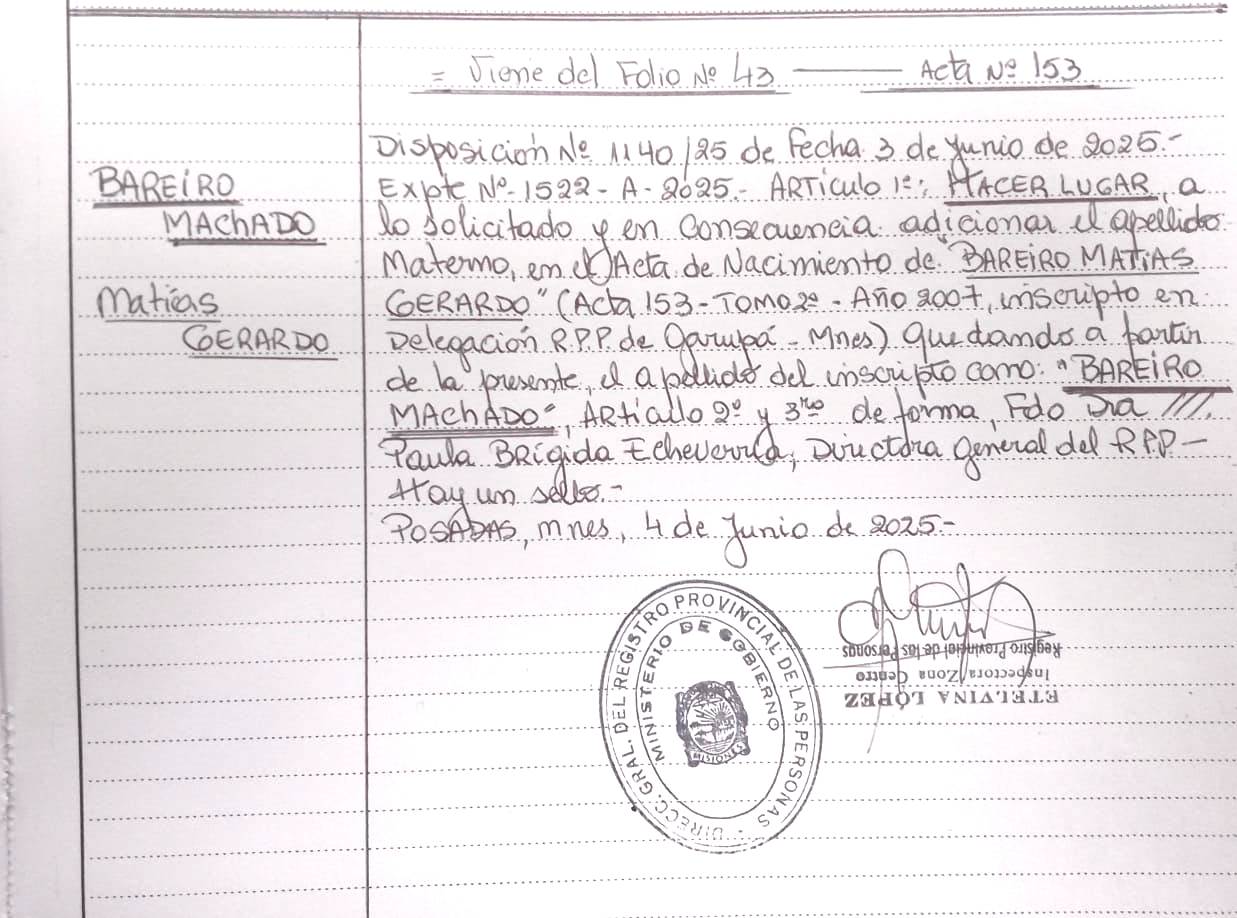 = Viene del Folio Nº 43 ——— Acta Nº 153
Disposición Nº 1140/25 de fecha 3 de Junio de 2025.-
BAREIRO
MACHADO
Expte Nº-1522-A-2025.- ARTículo 1º: HACER LUGAR, a
lo solicitado y en consecuencia adicionar el apellido
Materno, en el Acta de Nacimiento de "BAREIRO MATIAS
Matías
GERARDO
GERARDO" (Acta 153-TOMO 2º - Año 2007, inscripto en
Delegación R.P.P. de Garupá - Mnes) Quedando a partir
de la presente, el apellido del inscripto como: "BAREIRO
MACHADO", ARTículo 2º y 3ro de forma, Fdo Dra ///.
Paula BRígida Echeverría, Directora General del R.P.P —
Hay un sello.-
POSADAS, mnes, 4 de Junio de 2025-
DIRECC. GRAL. DEL REGISTRO PROVINCIAL DE LAS PERSONAS -
MINISTERIO DE GOBIERNO
MISIONES
ETELVINA LÓPEZ
Inspectora Zona Centro
Registro Provincial de las Personas